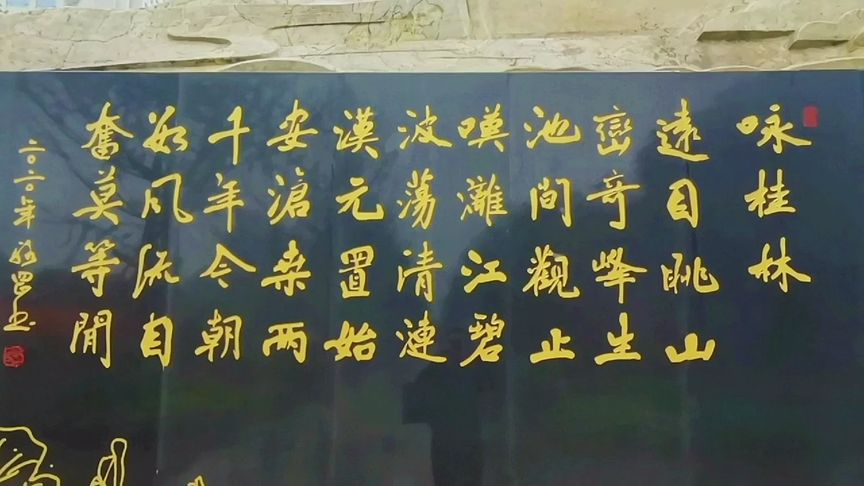 咏桂林
遠目眺山
巒奇峰生
池間觀止
嘆灕江碧
波蕩清漣
漢元置始
安滄桑兩
千年今朝
風流自
奮莫等閒
二〇二〇年